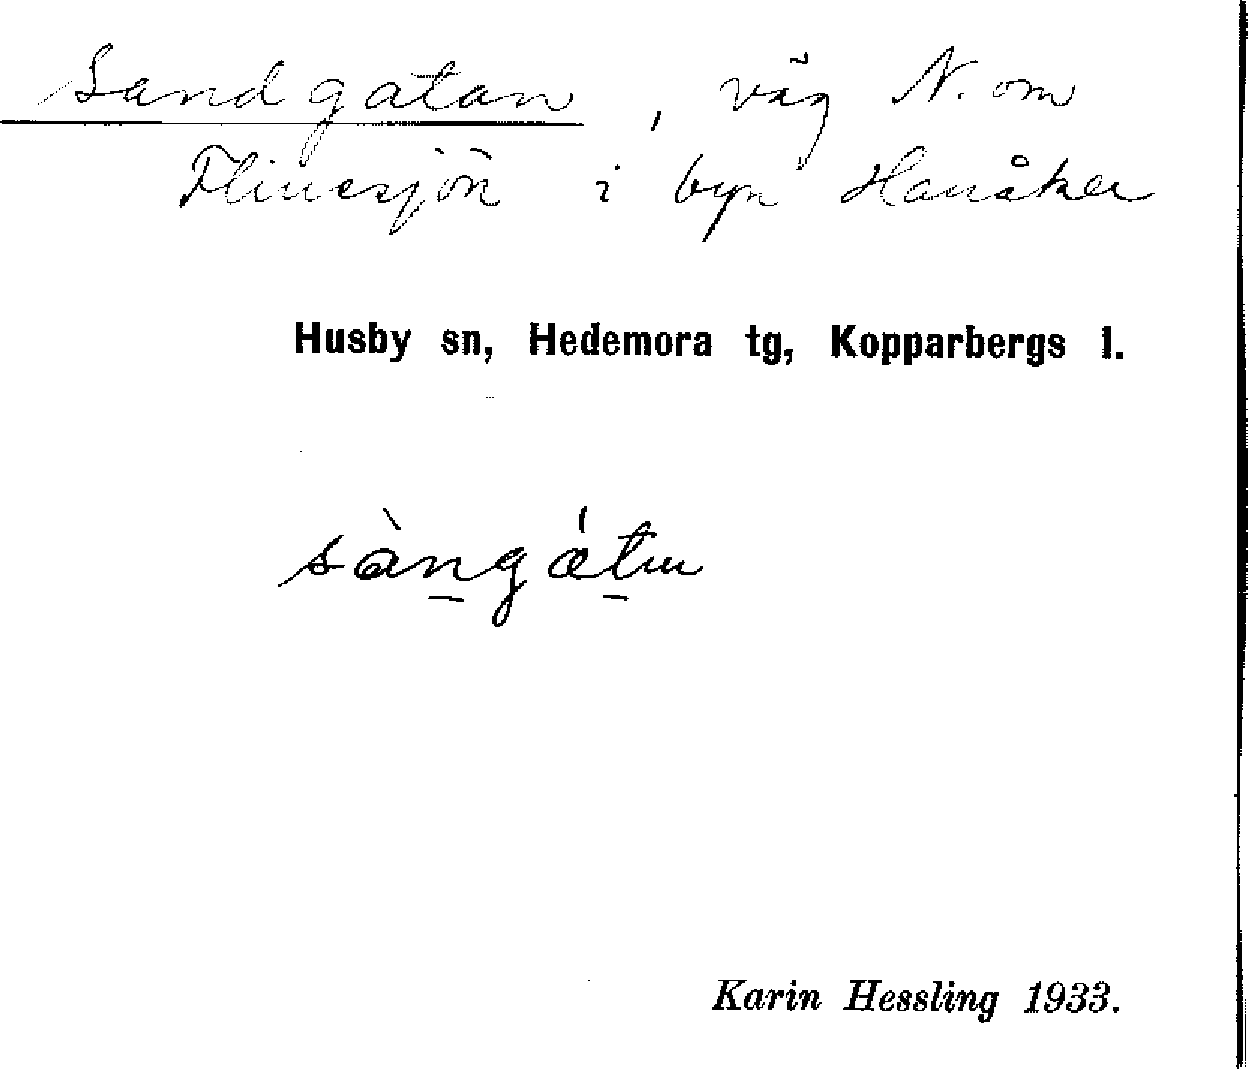 Sandgatan, väg N. om
Flinesjön i byn Hanåker
Husby sn, Hedemora tg, Kopparbergs l.
sàngátın
Karin Hessling 1933.